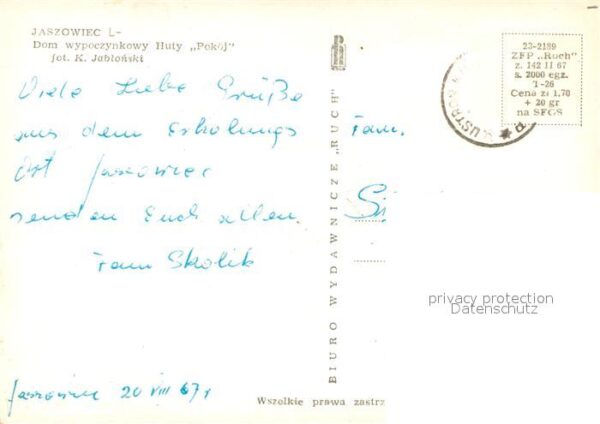 JASZOWIEC L-
Dom wypoczynkowy Huty „Pokój”
fot. K. Jabłoński
Viele Liebe Grüße
aus dem Erholungs
Ort Jaszowiec
senden Euch allen.
Fam Skolik
Jaszowiec 20 VIII 67 r
BIURO WYDAWNICZE „RUCH”
Wszelkie prawa zastrz
23-2189
ZFP „Ruch”
z. 142 II 67
s. 2000 egz.
T-26
Cena zł 1,70
+ 20 gr
na SFOS
USTRO
Fam.
privacy protection
Datenschutz